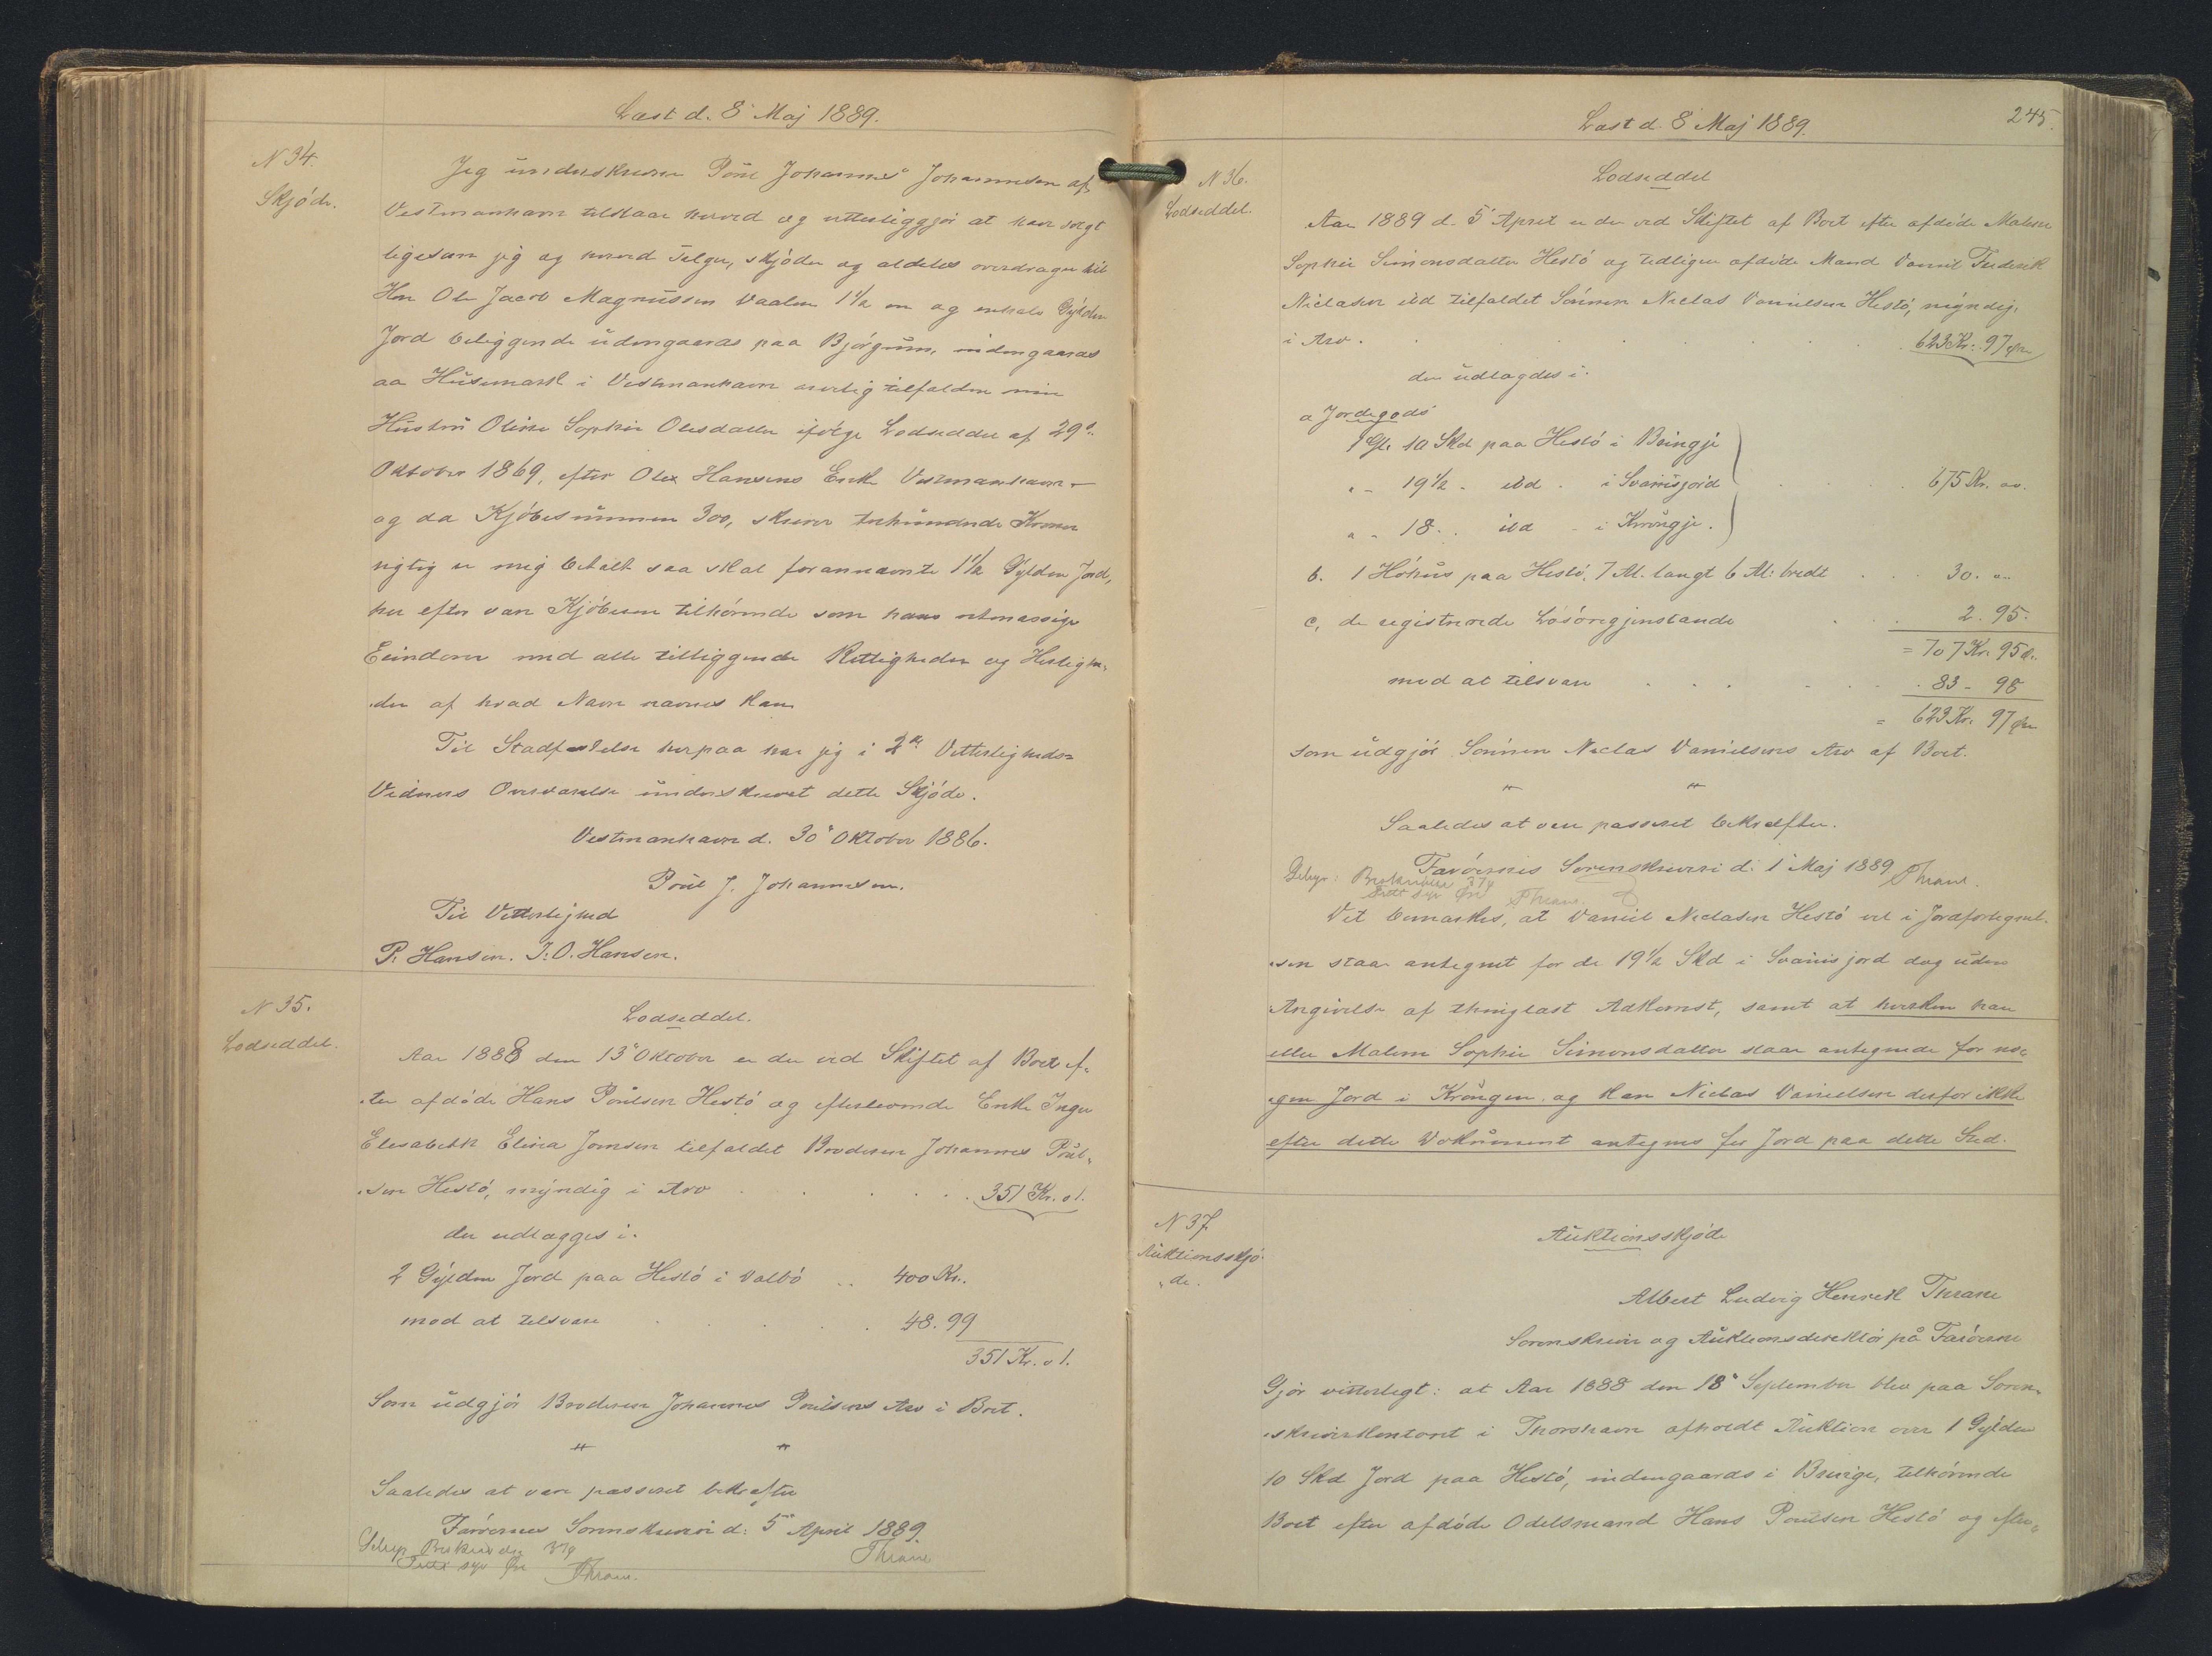 Læst d. 8' Maj 1889.
N 34.
Skjöde.
Jeg underskrevne Poul Johannes Johannesen af
Vestmanhavn tilstaar herved og vitterliggjör at have solgt
ligesom jeg og herved sælger, skjöder og aldeles overdrager til
Hr. Ole Jacob Magnussen Vaalen 1 1/2 en og enhalv Gylden
Jord beliggende udengaards paa Bjórgum, indengaards
aa Husumark i Vestmanhavn arvelig tilfalden min
Hustru Oline Sophie Olesdatter ifölge Lodseddel af 29'
Oktober 1869, efter Ole Hansens Enke Vestmanhavn –
og da Kjöbesummen 300, skriver trehundrede Kroner
rigtig er mig betalt saa skal forannævnte 1 1/2 Gylden Jord,
her efter være Kjöberen tilhörende som hans retmæssige
Eiendom med alle tilliggende Rettigheder og Herlighe-
der af hvad Navn nævnes kan.
Til Stadfæstelse herpaa har jeg i 2de Vitterligheds
Vidners Overværelse underskrevet dette Skjöde.
Vestmanhavn d. 30' Oktober 1886.
Poul J. Johannesen.
Til Vitterlighed
P. Hansen. J. O. Hansen.
N 35.
Lodseddel.
Lodseddel.
Aar 1888 den 13' Oktober er der ved Skiftet af Boet ef-
ter afdöde Hans Poulsen Hestö og efterlevende Enke Inger
Elisabeth Elina Joensen tilfaldet Broderen Johannes Poul-
sen Hestö, myndig i Arv . . . 351 Kr. 01.
der udlægges i.
2 Gylden Jord paa Hestö i Valbö .. 400 Kr.
mod at tilsvare . . . 48. 99
351 Kr. 01.
Som udgjör Broderen Johannes Poulsens Arv i Boet.
" "
Saaledes at være passeret bekræfter
Færöernes Sorenskriveri d. 5' April 1889.
Thrane
Gebyr Beskrivelse 37 ø
Tretti syv Øre Thrane.
Læst d. 8' Maj 1889.
245.
N 36.
Lodseddel.
Lodseddel
Aar 1889 d. 5' April er der ved Skiftet af Boet efter afdöde Malene
Sophie Simonsdatter Hestö og tidligere afdöde Mand Daniel Frederik
Niclasen ibd tilfaldet Sönnen Niclas Danielsen Hestö, myndig,
i Arv . . . 623 Kr. 97 Øre
der udlagdes i.
a Jordegods
1 Gl. 10 Skd paa Hestö i Bringje
" – 19 1/2 – ibd – i Svanisjord . . . 675 Kr. "
" – 18 – ibd – i Króngje.
b. 1 Höhus paa Hestö, 7 Al. langt 6 Al. bredt . . . 30. "
c, de registrerede Lösöregjenstande . . . 2. 95.
= 707 Kr. 95 Ø.
mod at tilsvare . . . 83 – 98
= 623 Kr. 97 Øre
som udgjör Sönnen Niclas Danielsens Arv af Boet.
" "
Saaledes at være passeret bekræfter.
Færöernes Sorenskriveri d. 1' Maj 1889 Thrane.
Gebyr: Beskrivelse 37 ø
Tretti syv Øre Thrane.
Det bemærkes, at Daniel Niclasen Hestö vel i Jordfortegnel-
sen staar antegnet for de 19 1/2 Skd i Svanisjord dog uden
Angivelse af thinglæst Adkomst, samt at hverken han
eller Malene Sophie Simonsdatter staar antegnede for no-
gen Jord i Króngen, og kan Niclas Danielsen derfor ikke
efter dette Dokument antegnes for Jord paa dette Sted.
N 37
Auktionsskjö-
de.
Auktionsskjöde
Albert Ludvig Henrik Thrane
Sorenskriver og Auktionsdirektör på Færöerne
Gjör vitterligt: at Aar 1888 den 18' September blev paa Soren-
skriverkontoret i Thorshavn afholdt Auktion over 1 Gylden
10 Skd Jord paa Hestö, indengaards i Bringe, tilhörende
Boet efter afdöde Odelsmand Hans Poulsen Hestö og efter-